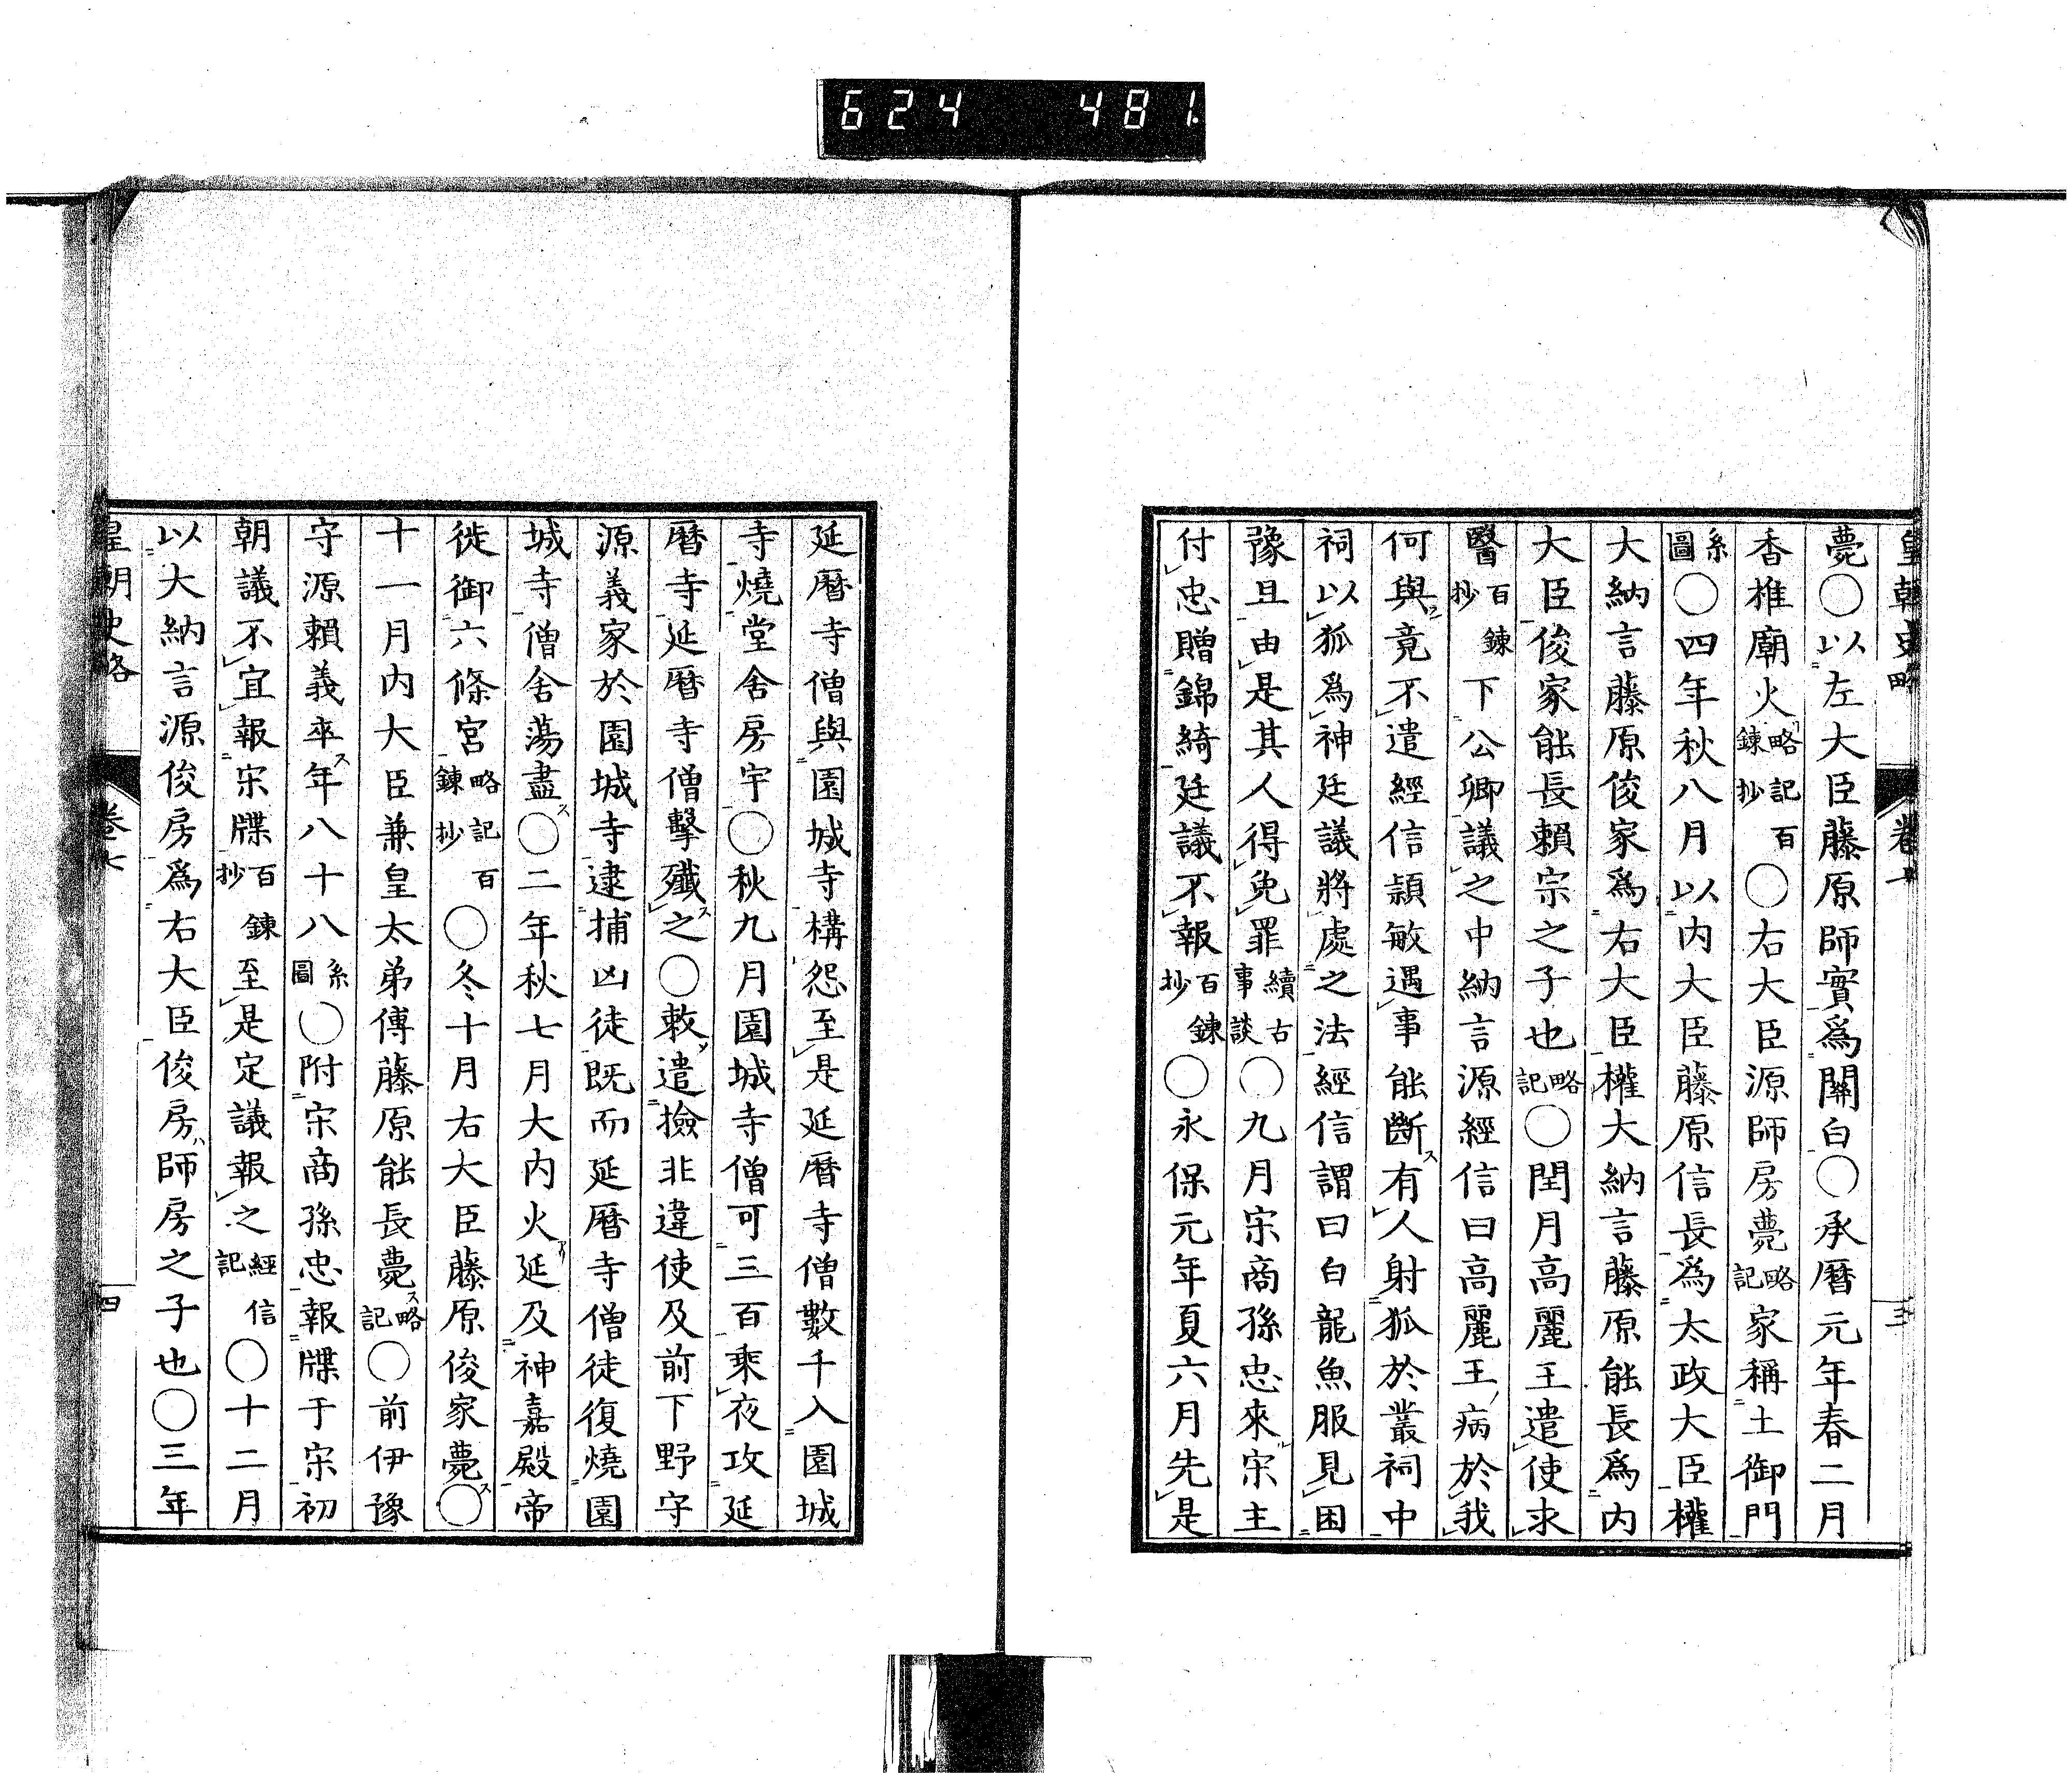 624 481.
皇朝史略 卷七 三
薨〇以左大臣藤原師實爲關白〇承曆元年春二月
香椎廟火略記百鍊抄〇右大臣源師房薨略記家稱土御門
系圖〇四年秋八月以內大臣藤原信長爲太政大臣權
大納言藤原俊家爲右大臣權大納言藤原能長爲內
大臣俊家能長賴宗之子也略記〇閏月高麗王遣使求
醫百鍊抄下公卿議之中納言源經信曰高麗王病於我
何與竟不遣經信頴敏遇事能斷有人射狐於叢祠中
祠以狐爲神廷議將處之法經信謂曰白龍魚服見困
豫且由是其人得免罪續古事談〇九月宋商孫忠來宋主
付忠贈錦綺廷議不報百鍊抄〇永保元年夏六月先是
延曆寺僧與園城寺構怨至是延曆寺僧數千入園城
寺燒堂舍房宇〇秋九月園城寺僧可三百乘夜攻延
曆寺延曆寺僧擊殲之〇敕遣撿非違使及前下野守
源義家於園城寺逮捕凶徒既而延曆寺僧徒復燒園
城寺僧舍蕩盡〇二年秋七月大內火延及神嘉殿帝
徙御六條宮略記百鍊抄〇冬十月右大臣藤原俊家薨〇
十一月內大臣兼皇太弟傅藤原能長薨略記〇前伊豫
守源賴義卒年八十八系圖〇附宋商孫忠報牒于宋初
朝議不宜報宋牒百鍊抄至是定議報之經信記〇十二月
以大納言源俊房爲右大臣俊房師房之子也〇三年
皇朝史略 卷七 四